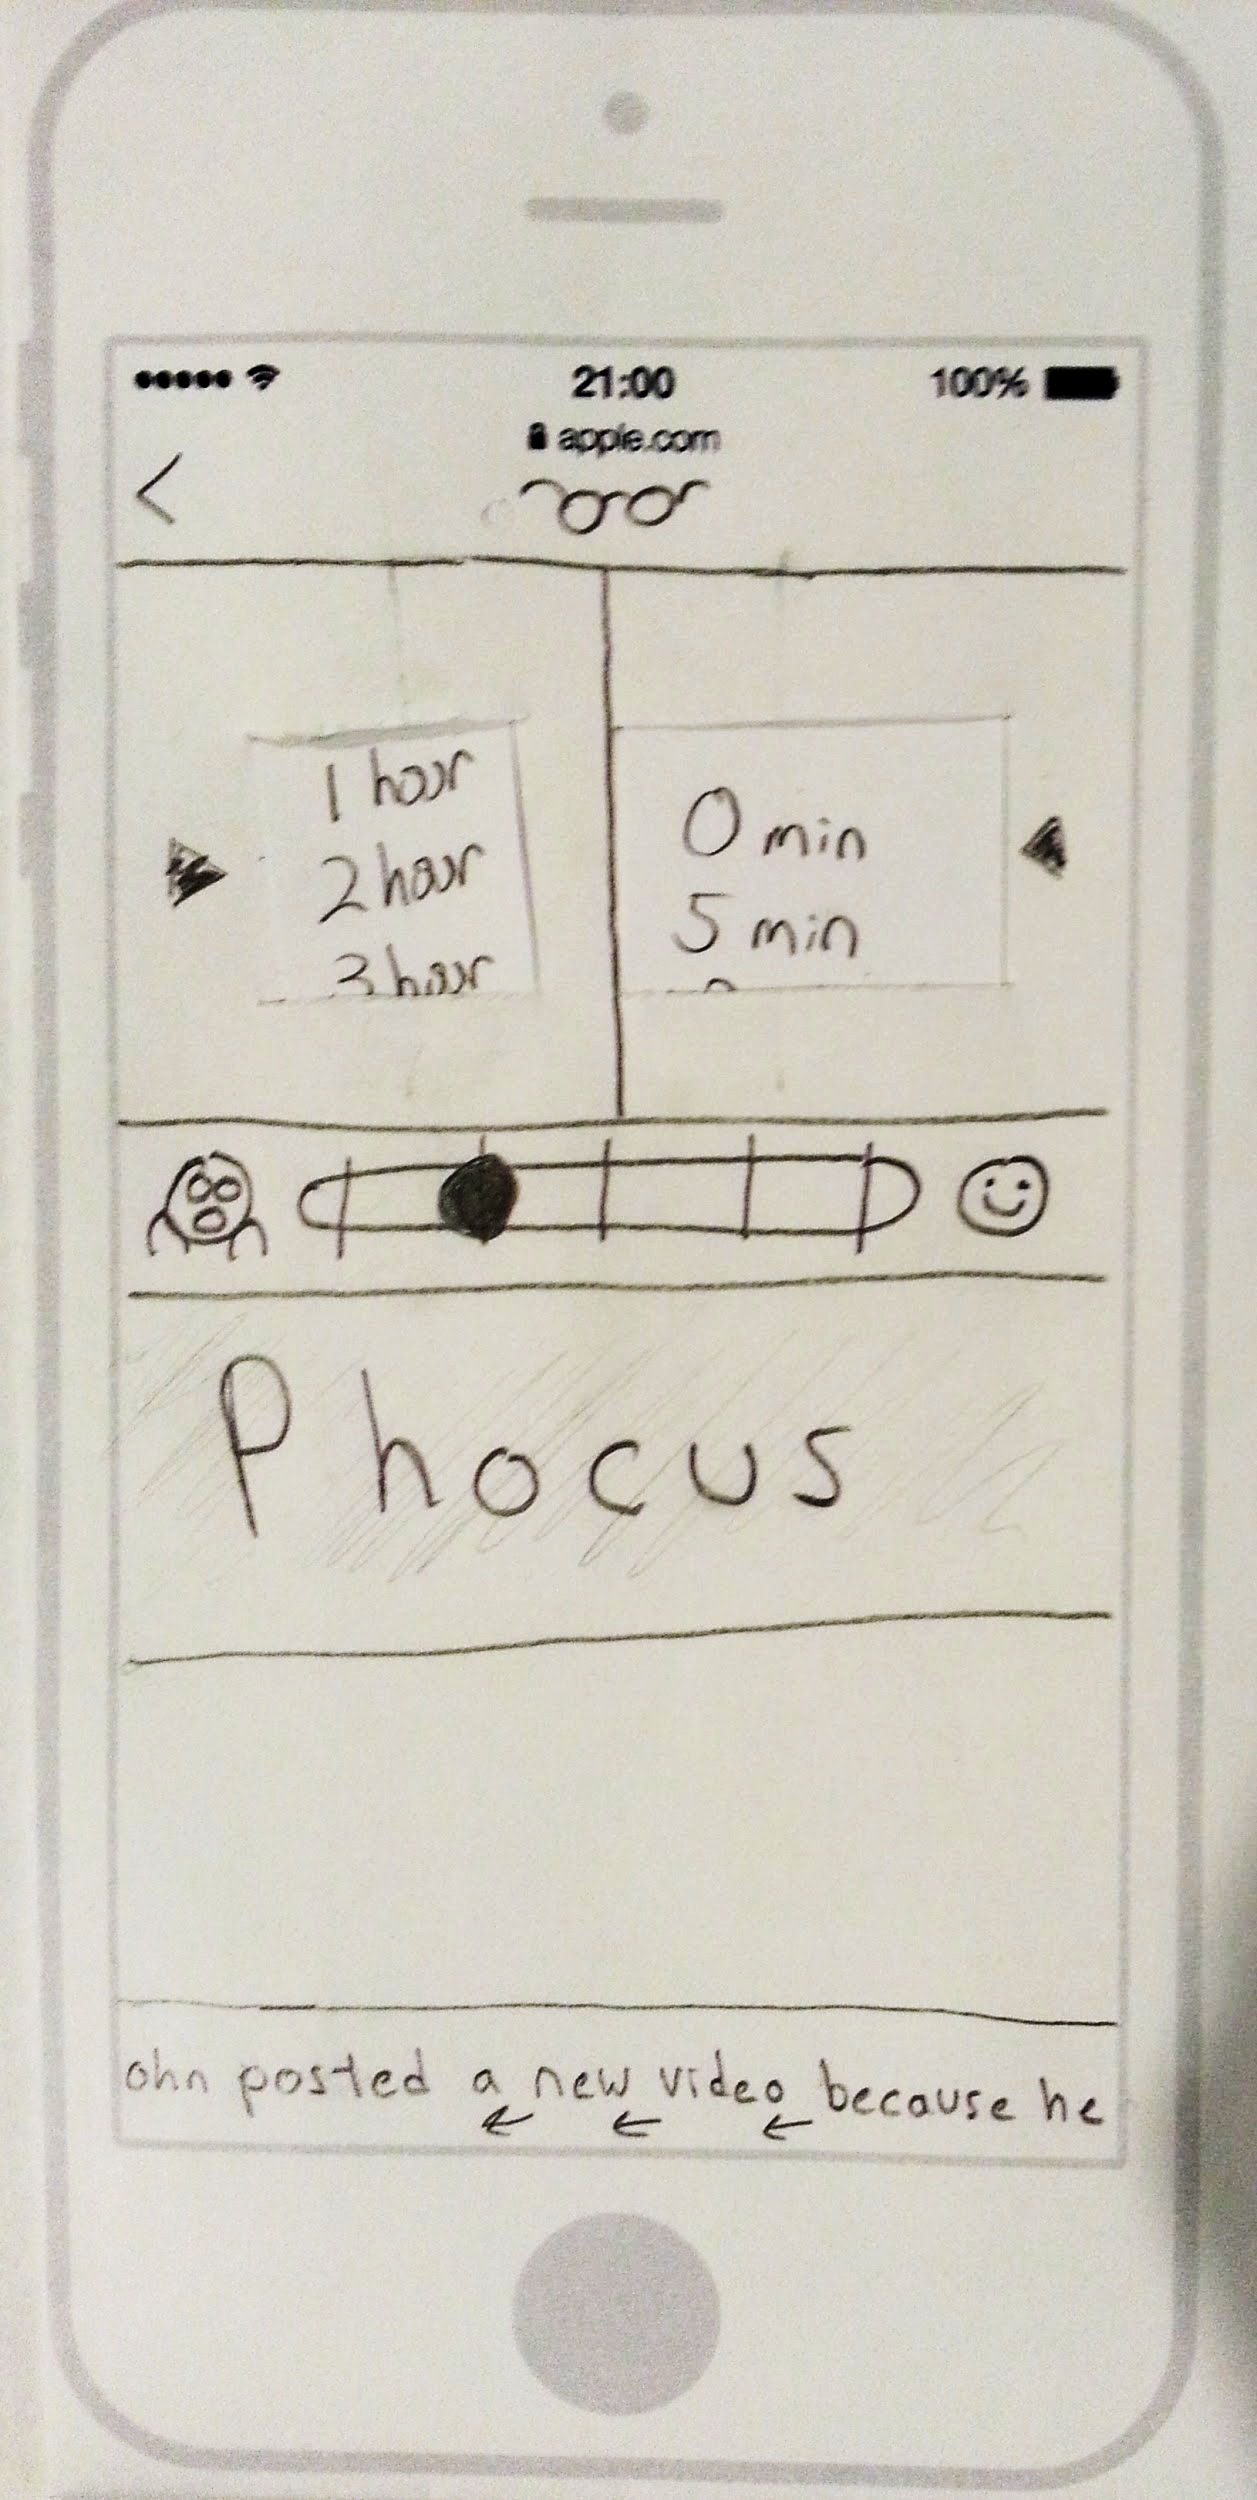 21:00
100%
apple.com
<
1 hour
2 hour
3 hour
0 min
5 min
Phocus
ohn posted a new video because he